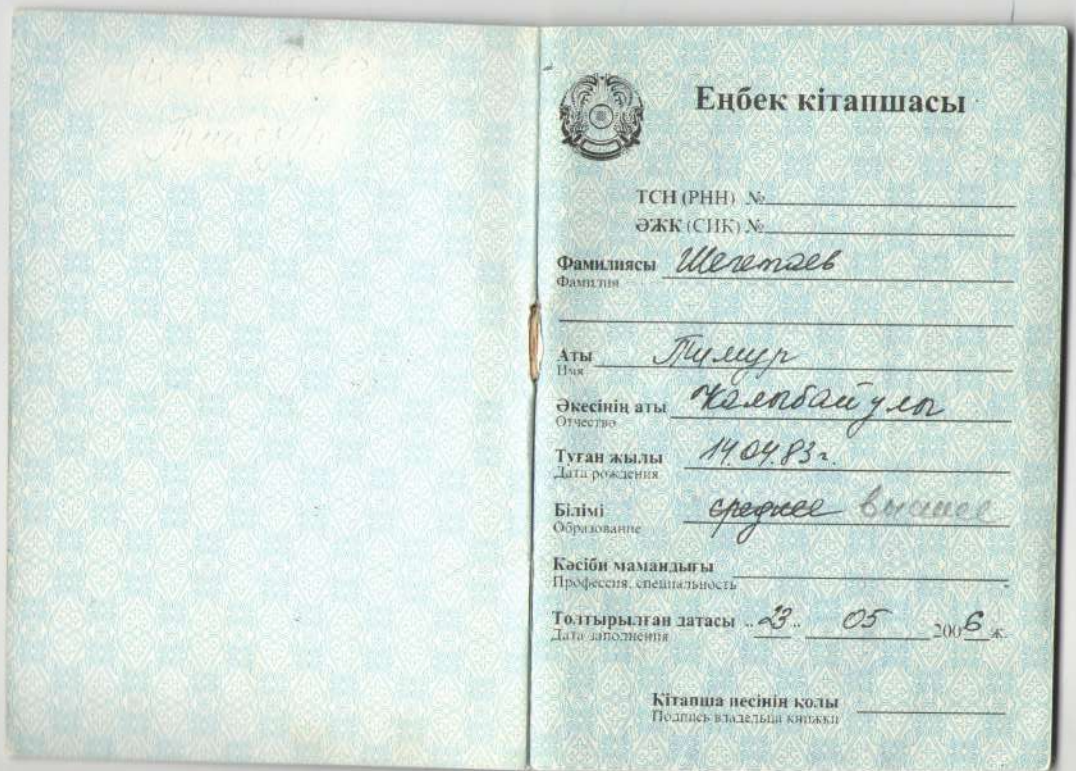 Еңбек кітапшасы
ТСН (РНН) №
ӘЖК (СИК) №
Фамилиясы Шегетаев
Фамилия
Аты Тимур
Имя
Әкесінің аты Калыбайулы
Отчество
Туған жылы 14.04.83г.
Дата рождения
Білімі среднее высшее
Образование
Кәсіби мамандығы
Профессия, специальность
Толтырылған датасы „23„ 05 2006 ж.
Дата заполнения
Кітапша иесінің қолы
Подпись владельца книжки